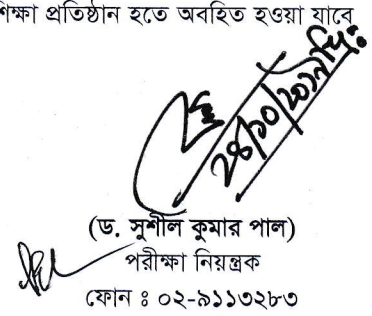 শিক্ষা প্রতিষ্ঠান হতে অবহিত হওয়া যাবে
(ড. সুশীল কুমার পাল)
পরীক্ষা নিয়ন্ত্রক
ফোন ঃ ০২-৯১১৩২৮৩